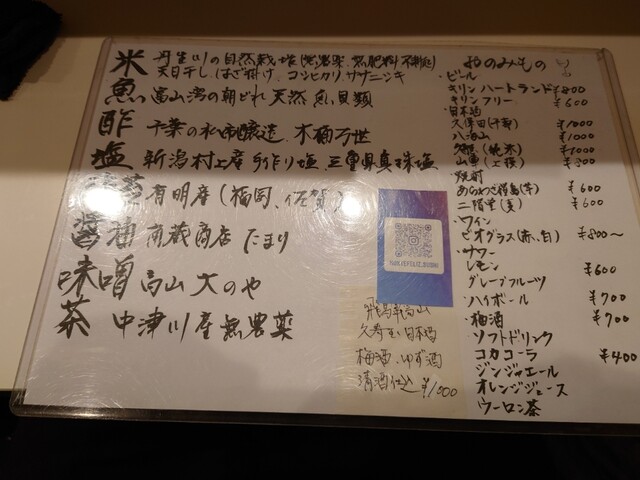 米 丹生川の自然栽培(無農薬、無肥料、不耕起)
天日干し、はざ掛け、コシヒカリ、ササニシキ
魚 富山湾の朝どれ天然魚貝類
酢 千葉の私市醸造、木桶万世
塩 新潟村上産手作り塩、三重県真珠塩
有明産(福岡、佐賀)
醤油 南蔵商店 たまり
味噌 高山 大のや
茶 中津川産無農薬
飛騨高山
久寿玉 日本酒
梅酒、ゆず酒
清酒仕込 ¥1000
おのみもの
・ビール
キリンハートランド ¥800
キリンフリー ¥600
・日本酒
久保田(千寿) ¥1000
八海山 ¥1000
(純米) ¥1000
山車(上撰)
焼酎
(芋) ¥600
二階堂(麦) ¥600
・ワイン
ビオグラス(赤、白) ¥800〜
・サワー
レモン ¥600
グレープフルーツ
・ハイボール ¥700
・梅酒 ¥700
・ソフトドリンク
コカコーラ ¥400
ジンジャエール
オレンジジュース
ウーロン茶